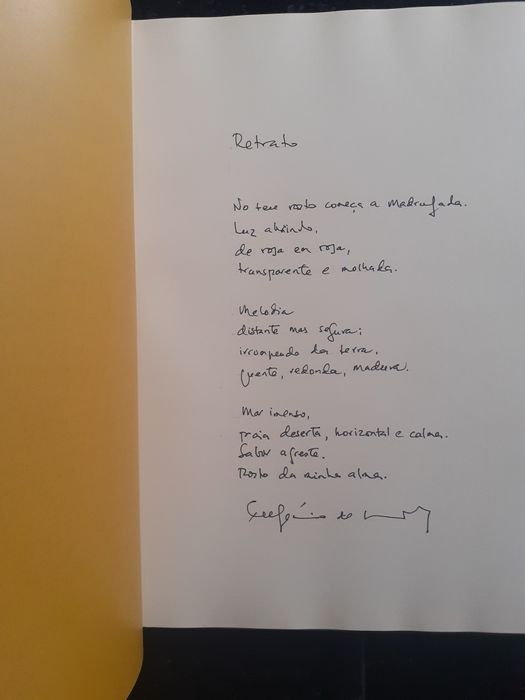 Retrato
No teu rosto começa a madrugada.
Luz abrindo,
de rosa em rosa,
transparente e molhada.
Melodia
distante mas segura;
irrompendo da terra,
quente, redonda, madura.
Mar imenso,
praia deserta, horizontal e calma.
Sabor agreste.
Rosto da minha alma.
Eugénio de Andrade